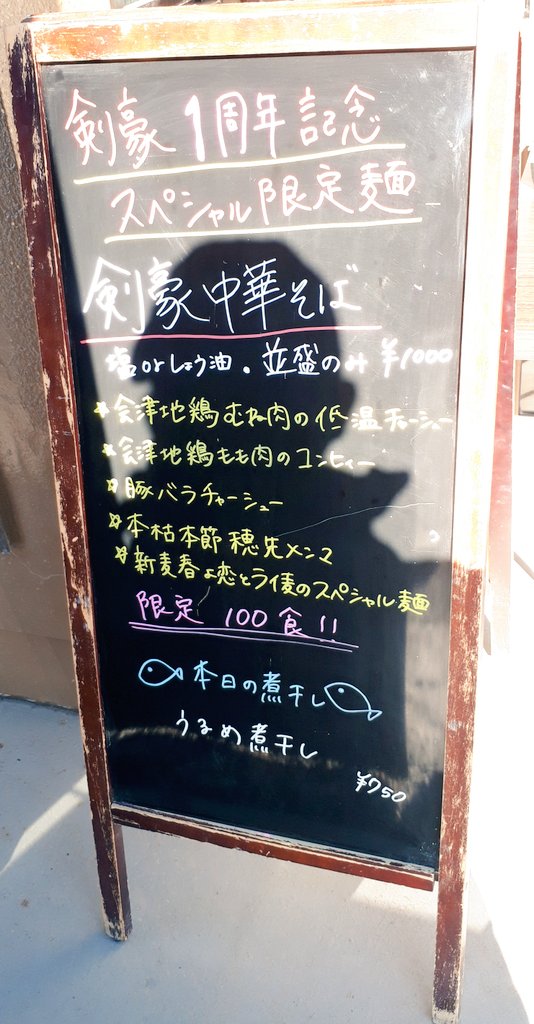 剣豪 1周年記念
スペシャル限定麺
剣豪中華そば
塩orしょう油。並盛のみ ¥1000
☆会津地鶏むね肉の低温チャーシュー
☆会津地鶏もも肉のコンフィー
☆豚バラチャーシュー
☆本枯本節穂先メンマ
☆新麦春よ恋とライ麦のスペシャル麺
限定 100食!!
本日の煮干し
うるめ煮干し
¥750